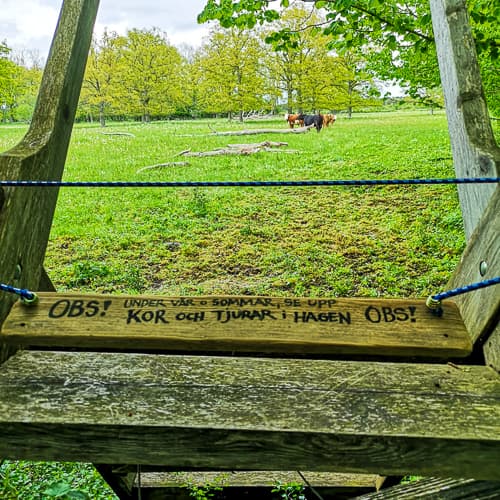 OBS! UNDER VÅR o SOMMAR, SE UPP
KOR OCH TJURAR i HAGEN OBS!